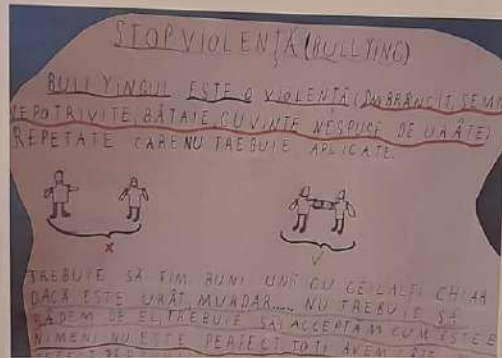 STOP VIOLENȚĂ (BULLYING)
BULLYINGUL ESTE O VIOLENȚĂ (ÎMBRÂNCIT, SEMN
NEPOTRIVITE, BĂTAIE, CUVINTE NESPUSE DE URÂTE)
REPETATE CARE NU TREBUIE APLICATE.
TREBUIE SĂ FIM BUNI UNII CU CEILALȚI CHIAR
DACĂ ESTE URÂT, MURDAR..... NU TREBUIE SĂ
RÂDEM DE EL, TREBUIE SĂ-L ACCEPTĂM CUM ESTE
NIMENI NU ESTE PERFECT, TOȚI AVEM